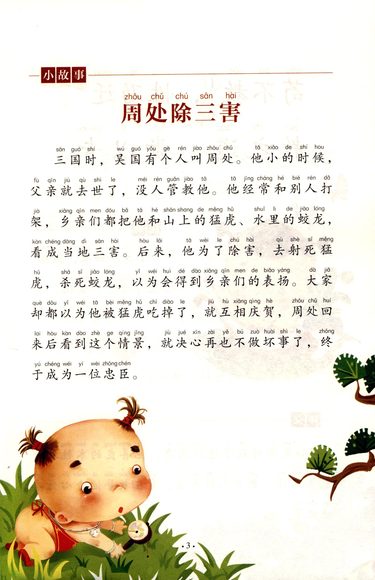 小故事
zhōu chǔ chú sān hài
周处除三害
sān guó shí wú guó yǒu gè rén jiào zhōu chǔ tā xiǎo de shí hou
三国时，吴国有个人叫周处。他小的时候，
fù qīn jiù qù shì le méi rén guǎn jiào tā tā jīng cháng hé bié rén dǎ
父亲就去世了，没人管教他。他经常和别人打
jià xiāng qīn men dōu bǎ tā hé shān shang de měng hǔ shuǐ li de jiāo lóng
架，乡亲们都把他和山上的猛虎、水里的蛟龙，
kàn chéng dāng dì sān hài hòu lái tā wèi le chú hài qù shè sǐ měng
看成当地三害。后来，他为了除害，去射死猛
hǔ shā sǐ jiāo lóng yǐ wéi huì dé dào xiāng qīn men de biǎo yáng dà jiā
虎，杀死蛟龙，以为会得到乡亲们的表扬。大家
què dōu yǐ wéi tā bèi měng hǔ chī diào le jiù hù xiāng qìng hè zhōu chǔ huí
却都以为他被猛虎吃掉了，就互相庆贺，周处回
lái hòu kàn dào zhè ge qíng jǐng jiù jué xīn zài yě bú zuò huài shì le zhōng
来后看到这个情景，就决心再也不做坏事了，终
yú chéng wéi yí wèi zhōng chén
于成为一位忠臣。
·3·